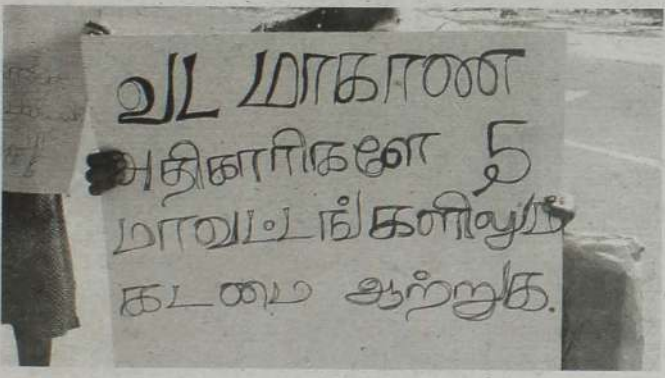 வட மாகாண
அதிகாரிகளே 5
மாவட்டங்களிலும்
கடமை ஆற்றுக.